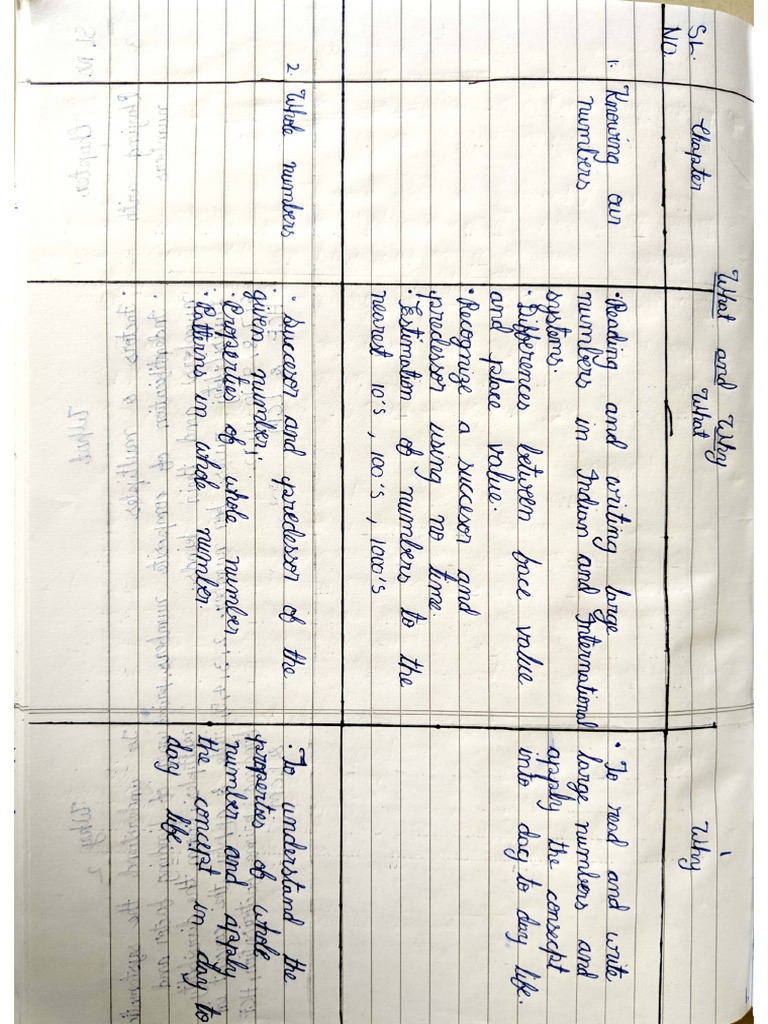 What and Why
SL.
NO.
Chapter
What
Why
1.
Knowing our
numbers
• Reading and writing large
numbers in Indian and International
systems.
• Differences between face value
and place value.
• Recognize a succesor and
predessor using no time.
• Estimation of numbers to the
nearest 10's, 100's, 1000's
• To read and write
large numbers and
apply the consecpt
into day to day life.
2.
Whole numbers
• Succesor and predessor of the
given number;
• Properties of whole number
• Patterns in whole number
• To understand the
properties of whole
number and apply
the concept in day to
day life